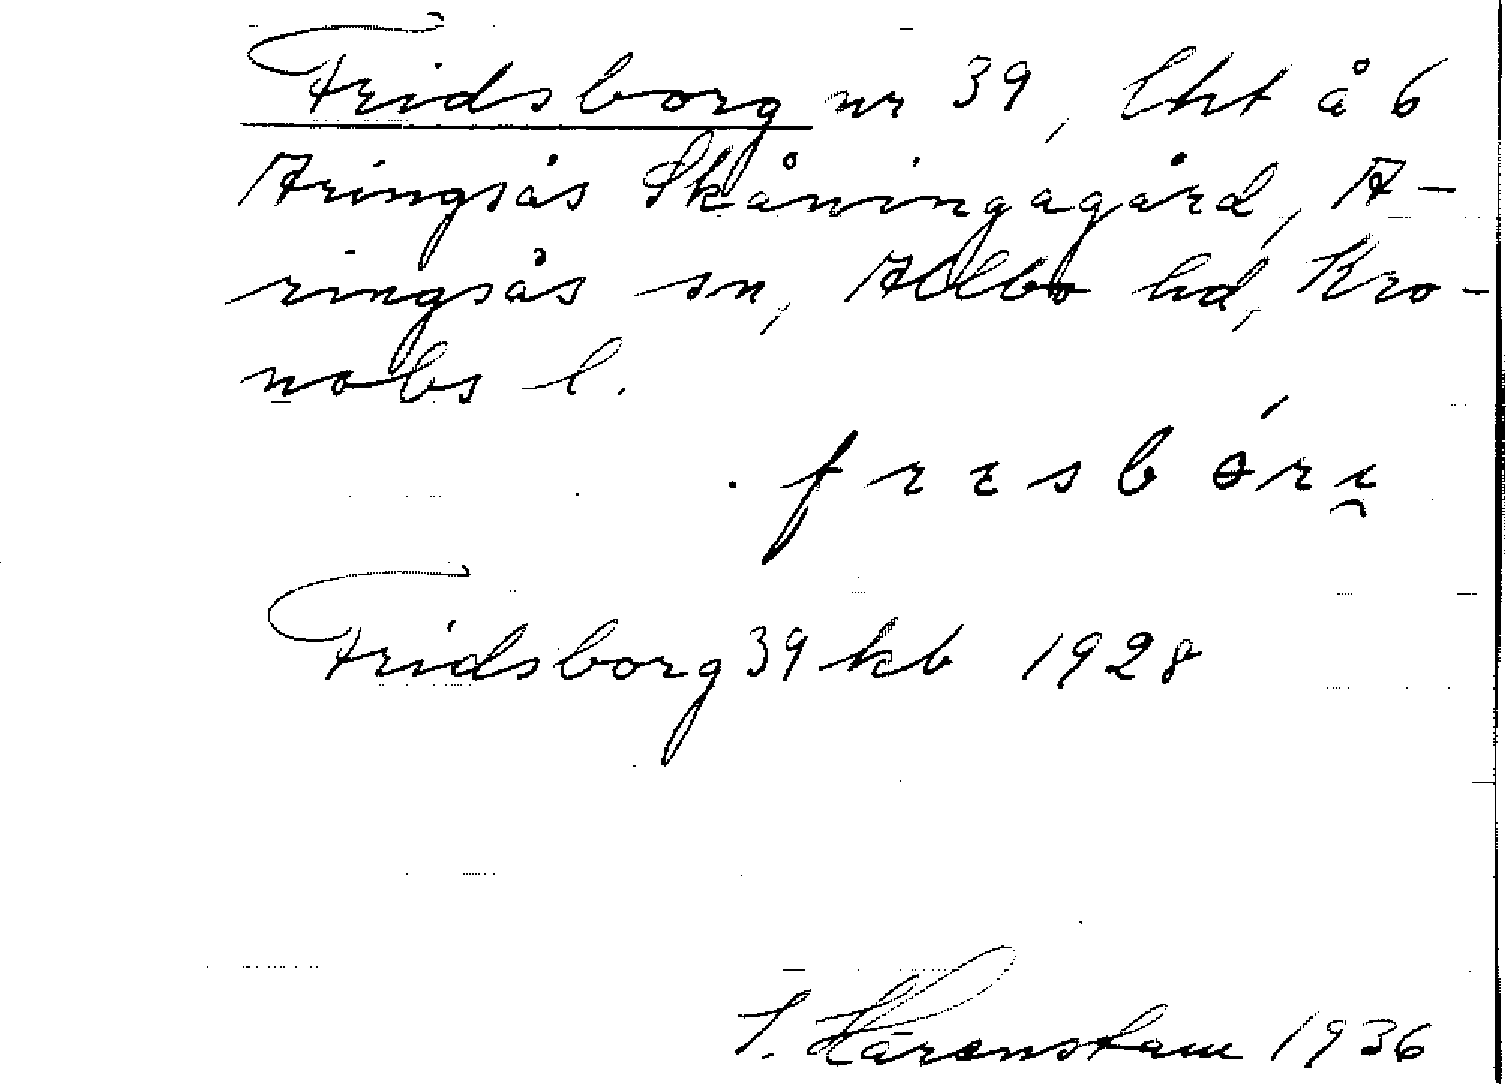 Fridsborg nr 39, lht å 6
Aringsås Skåningagård, A-
ringsås sn, Allbo hd, Kro-
nobs l.
Fridsborg 39 kb 1928
S. Härenstam 1936